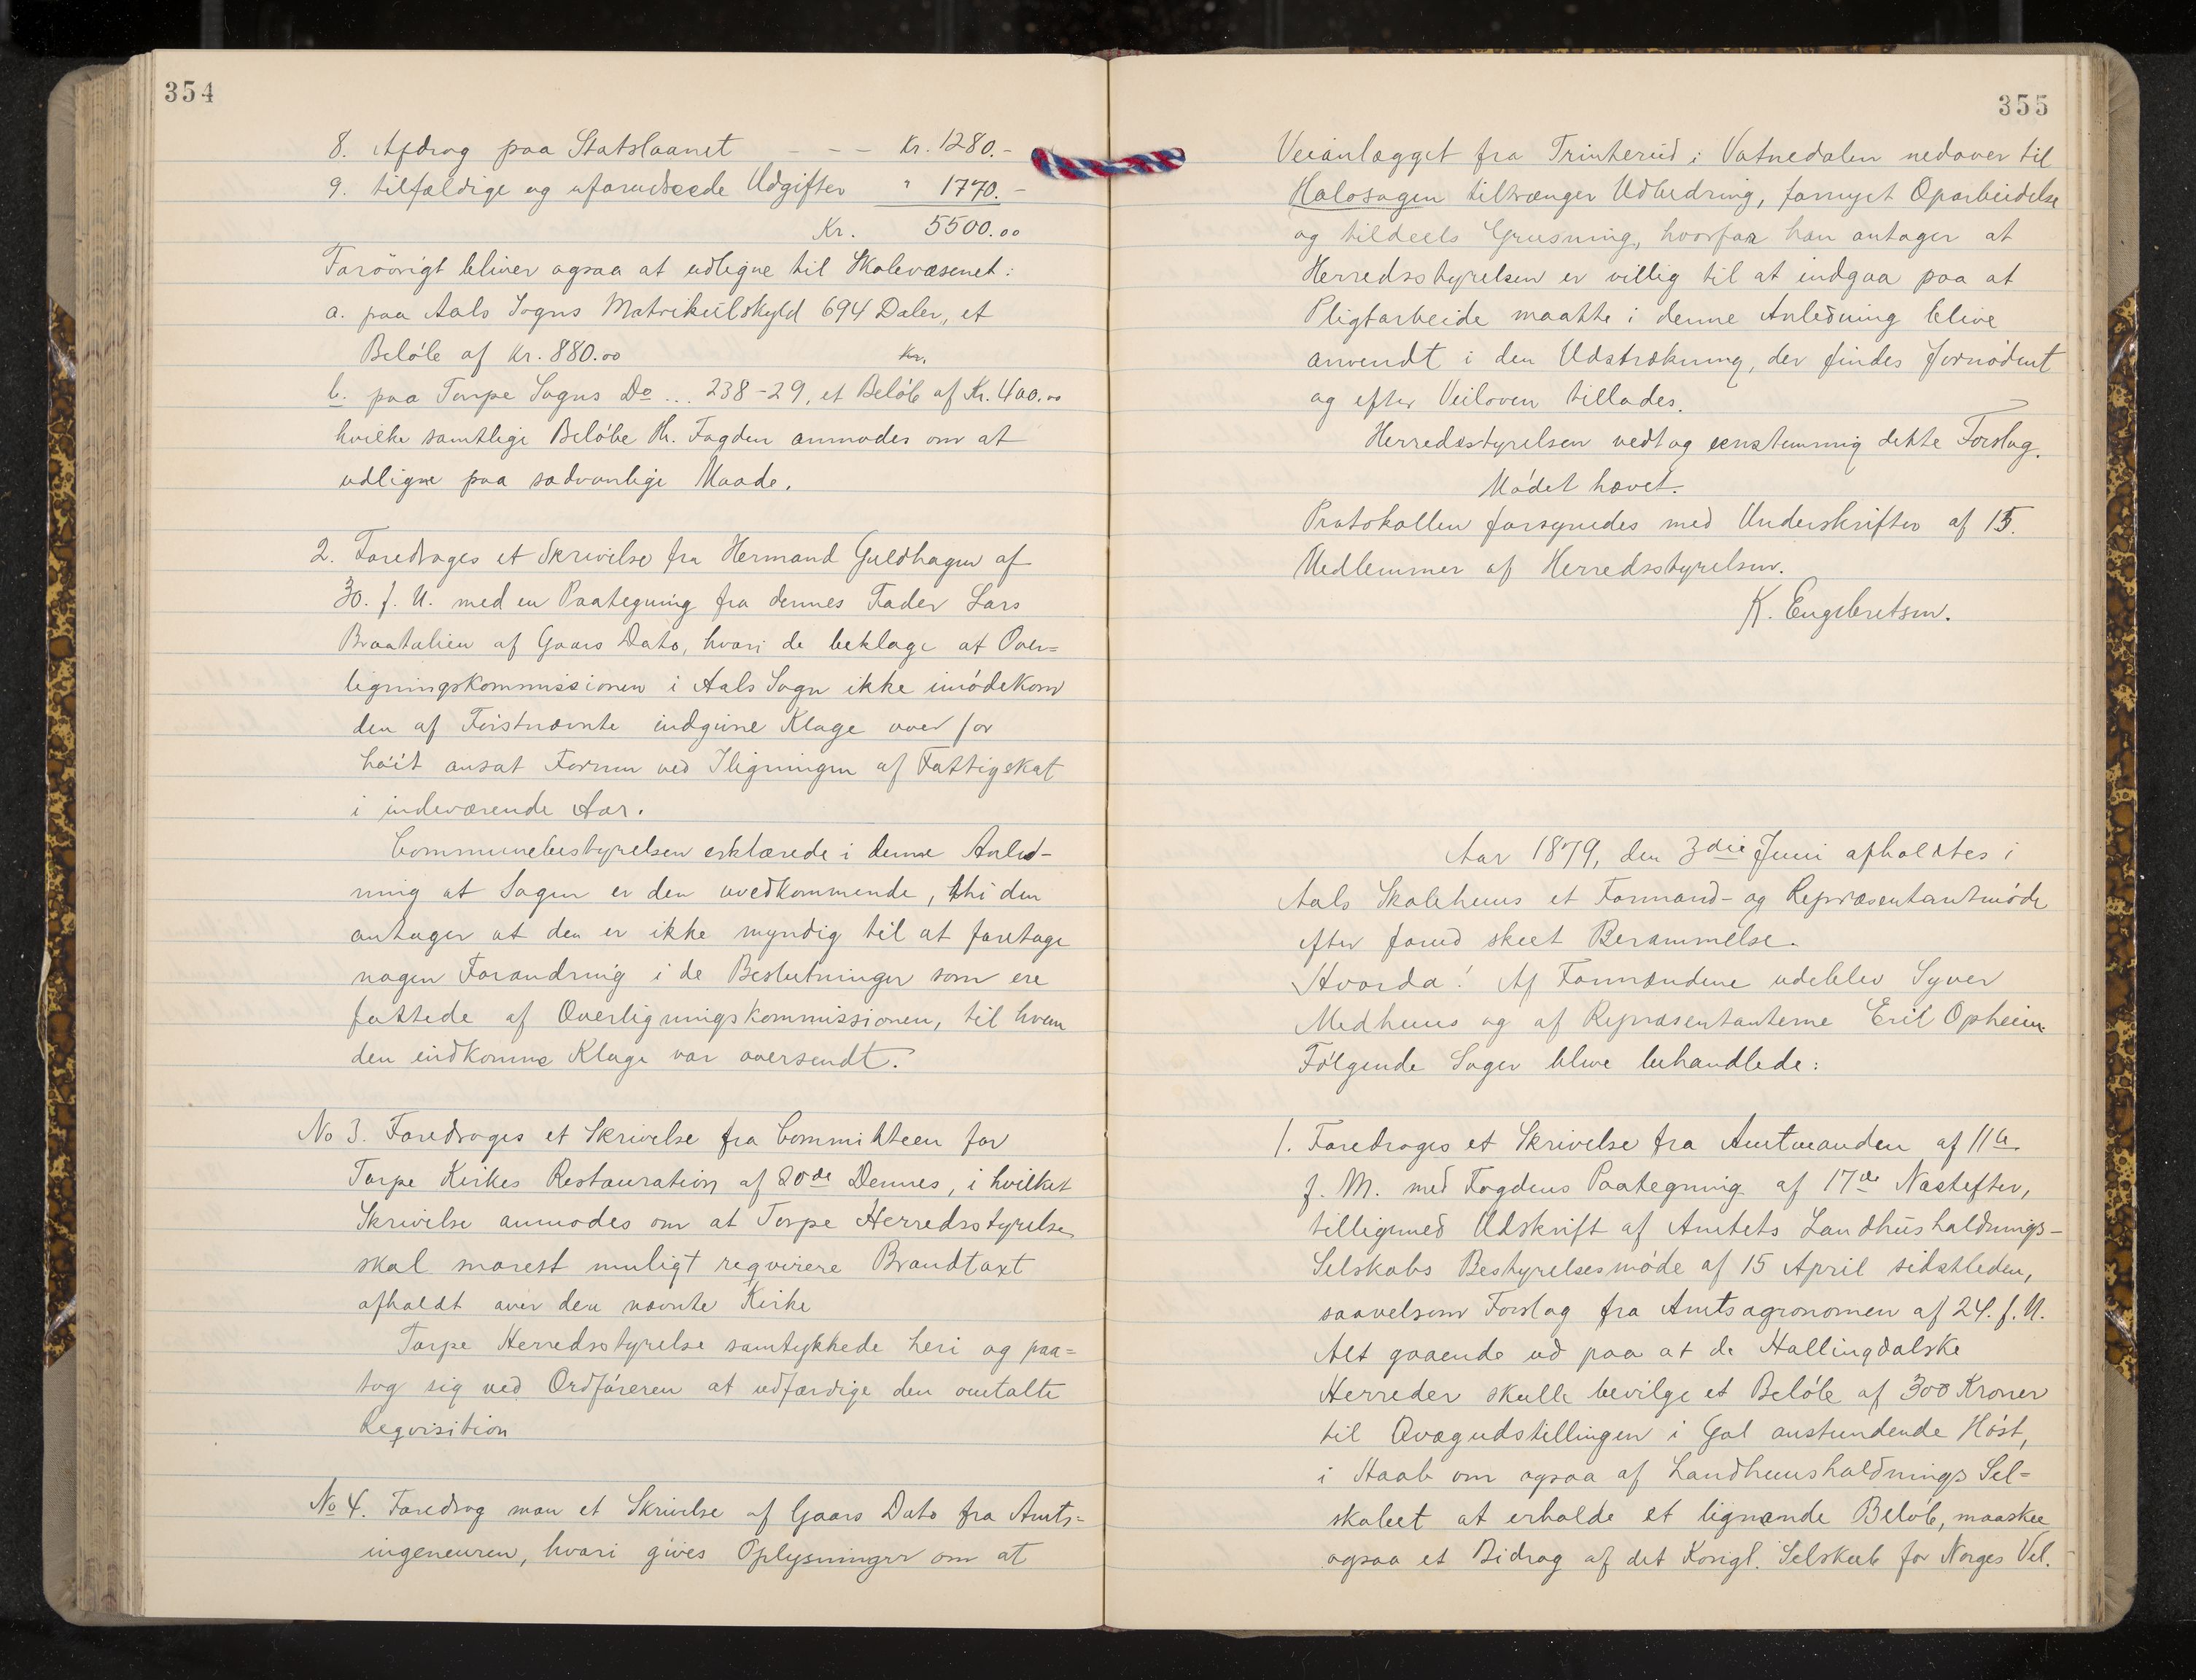 354
8. Afdrag paa Statslaanet - - - Kr. 1280.-
9. tilfældige og uforudseede Udgifter " 1770.-
Kr. 5500.00
Forövrigt bliver ogsaa at udligne til Skolevæsenet:
a. paa Aals Sogns Matrikülskyld 694 Daler, et
Beløb af Kr. 880.00 Kr.
b. paa Torpe Sogns Do ... 238-29, et Beløb af Kr. 400.00
hvilke samtlige Beløbe Hr. Fogden anmodes om at
udligne paa sædvanlige Maade.
2. Foredroges et Skrivelse fra Hermand Guldhagen af
30. f. M. med en Paategning fra dennes Fader Lars
Braatalien af Gaars Dato, hvori de beklage at Over=
ligningskommissionen i Aals Sogn ikke imødekom
den af Førstnævnte indgivne Klage over for
høit ansat Formue ved Iligningen af Fattigskat
i indeværende Aar.
Communebestyrelsen erklærede i denne Anled-
ning at Sagen er den uvedkommende, thi den
antager at den er ikke myndig til at foretage
nogen Forandring i de Beslutninger som ere
fattede af Overligningskommissionen, til hvem
den indkomne Klage var oversendt.
No 3. Foredroges et Skrivelse fra Committeen for
Torpe Kirkes Restauration af 20de Dennes, i hvilket
Skrivelse anmodes om at Torpe Herredsstyrelse
skal snarest muligt reqvirere Brandtaxt
afholdt over den nævnte Kirke
Torpe Herredsstyrelse samtykkede heri og paa=
tog sig ved Ordføreren at udfærdige den omtalte
Reqvisition
No 4. Foredrog man et Skrivelse af Gaars Dato fra Amts=
ingeneuren, hvori gives Oplysninger om at
355
Veianlægget fra Trinterud i Vatnedalen nedover til
Halosagen tiltrænger Udbedring, fornyet Oparbeidelse
og tildeels Grusning, hvorfor han antager at
Herredsstyrelsen er villig til at indgaa paa at
Pligtarbeide maatte i denne Anledning blive
anvendt i den Udstrækning, der findes fornødent
og efter Veiloven tillades.
Herredsstyrelsen vedtog eenstemmig dette Forslag.
Mødet hævet.
Protokollen forsynedes med Underskrifter af 15.
Medlemmer af Herredsstyrelsen.
K. Engebretsen.
Aar 1879, den 3die Juni afholdtes i
Aals Skolehuus et Formand- og Repræsentantmøde
efter forud skeet Berammelse.
Hvorda! Af Formændene udeblev Syver
Medhuus og af Repræsentanterne Erik Opheim.
Følgende Sager bleve behandlede:
1. Foredroges et Skrivelse fra Amtmanden af 11te
f. M. med Fogdens Paategning af 17de Næstefter,
tilligemed Udskrift af Amtets Landhüsholdnings-
Selskabs Bestyrelsesmøde af 15 April sidstleden,
saavelsom Forslag fra Amtsagronomen af 24. f. M.
Alt gaaende ud paa at de Hallingdalske
Herreder skulle bevilge et Beløb af 300 Kroner
til Qvægudstillingen i Gol anstundende Høst,
i Haab om ogsaa af Landhuusholdnings Sel=
skabet at erholde et lignende Beløb, maaskee
ogsaa et Bidrag af det Kongl. Selskab for Norges Vel.